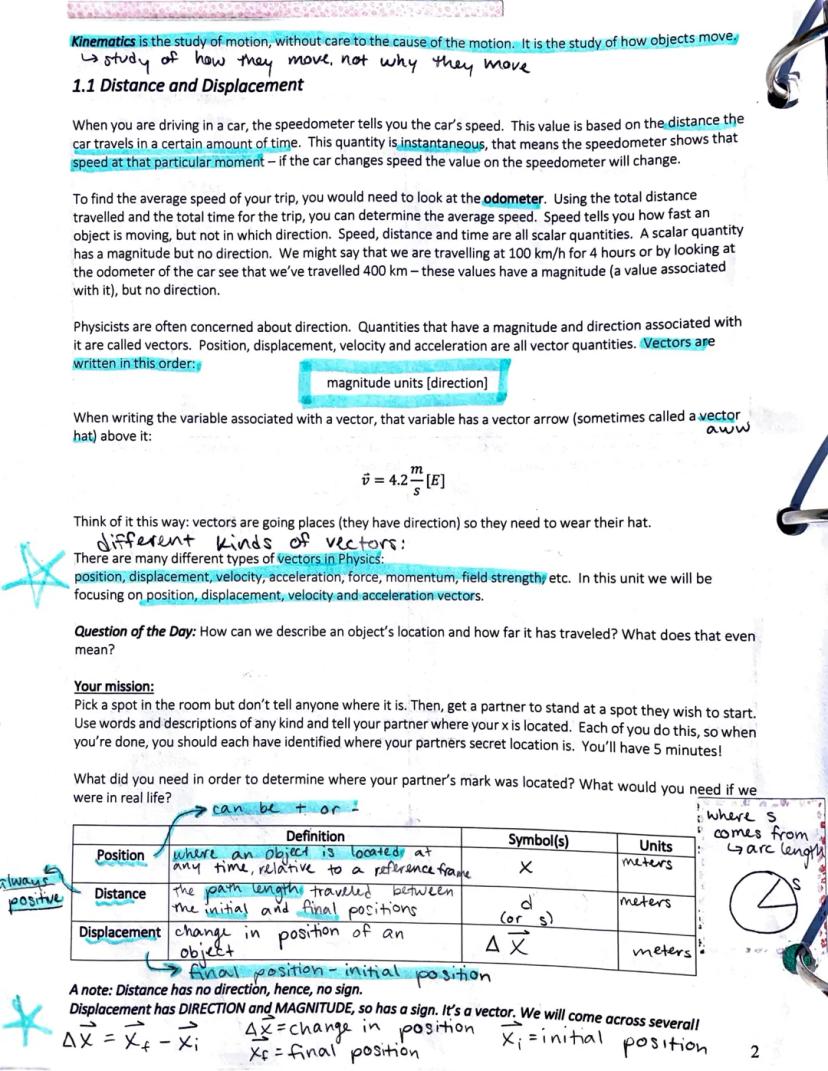 Kinematics is the study of motion, without care to the cause of the motion. It is the study of how objects move.
↳ study of how they move, not why they move
1.1 Distance and Displacement
When you are driving in a car, the speedometer tells you the car's speed. This value is based on the distance the
car travels in a certain amount of time. This quantity is instantaneous, that means the speedometer shows that
speed at that particular moment – if the car changes speed the value on the speedometer will change.
To find the average speed of your trip, you would need to look at the odometer. Using the total distance
travelled and the total time for the trip, you can determine the average speed. Speed tells you how fast an
object is moving, but not in which direction. Speed, distance and time are all scalar quantities. A scalar quantity
has a magnitude but no direction. We might say that we are travelling at 100 km/h for 4 hours or by looking at
the odometer of the car see that we've travelled 400 km – these values have a magnitude (a value associated
with it), but no direction.
Physicists are often concerned about direction. Quantities that have a magnitude and direction associated with
it are called vectors. Position, displacement, velocity and acceleration are all vector quantities. Vectors are
written in this order:
magnitude units [direction]
When writing the variable associated with a vector, that variable has a vector arrow (sometimes called a vector
hat) above it:
aww
v⃗ = 4.2 m/s [E]
Think of it this way: vectors are going places (they have direction) so they need to wear their hat.
different kinds of vectors:
There are many different types of vectors in Physics:
position, displacement, velocity, acceleration, force, momentum, field strength, etc. In this unit we will be
focusing on position, displacement, velocity and acceleration vectors.
Question of the Day: How can we describe an object's location and how far it has traveled? What does that even
mean?
Your mission:
Pick a spot in the room but don't tell anyone where it is. Then, get a partner to stand at a spot they wish to start.
Use words and descriptions of any kind and tell your partner where your x is located. Each of you do this, so when
you're done, you should each have identified where your partners secret location is. You'll have 5 minutes!
What did you need in order to determine where your partner's mark was located? What would you need if we
were in real life?
→ can be + or -
Definition Symbol(s) Units
Position where an object is located at any time, relative to a reference frame X meters
always positive
Distance the path length traveled between the initial and final positions d (or s) meters
Displacement change in position of an object Δx⃗ meters
↳ final position - initial position
where s
comes from
↳ arc length
s
A note: Distance has no direction, hence, no sign.
Displacement has DIRECTION and MAGNITUDE, so has a sign. It's a vector. We will come across several!
Δx⃗ = x⃗f - x⃗i Δx⃗ = change in position x⃗i = initial position
x⃗f = final position
2